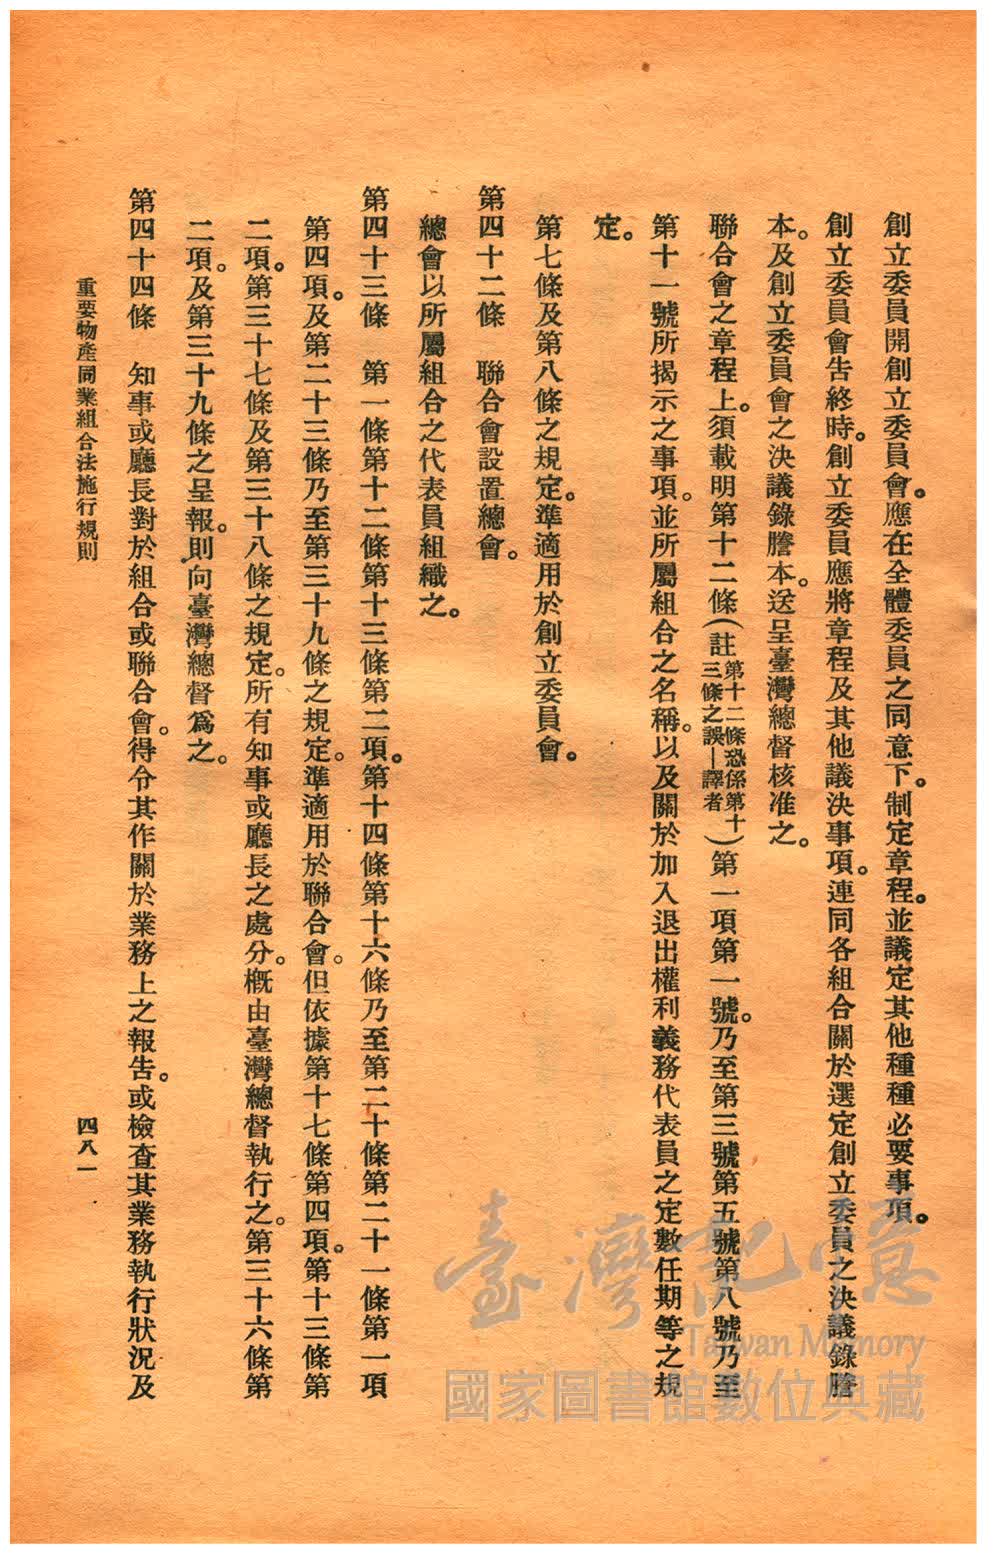 創立委員開創立委員會。應在全體委員之同意下。制定章程。並議定其他種種必要事項。
創立委員會吿終時。創立委員應將章程及其他議決事項。連同各組合關於選定創立委員之決議錄謄
本。及創立委員會之決議錄謄本。送呈臺灣總督核准之。
聯合會之章程上。須載明第十二條(註第十二條恐係第十三條之誤—譯者)第一項第一號。乃至第三號第五號第八號乃至
第十一號所揭示之事項。並所屬組合之名稱。以及關於加入退出權利義務代表員之定數任期等之規
定。
第七條及第八條之規定。準適用於創立委員會。
第四十二條　聯合會設置總會。
總會以所屬組合之代表員組織之。
第四十三條　第一條第十二條第十三條第二項。第十四條第十六條乃至第二十條第二十一條第一項
第四項。及第二十三條乃至第三十九條之規定。準適用於聯合會。但依據第十七條第四項。第十三條第
二項。第三十七條及第三十八條之規定。所有知事或廳長之處分。槪由臺灣總督執行之。第三十六條第
二項。及第三十九條之呈報。則向臺灣總督爲之。
第四十四條　知事或廳長對於組合或聯合會。得令其作關於業務上之報告。或檢查其業務執行狀況及
重要物產同業組合法施行規則
四八一
臺灣記憶
Taiwan Memory
國家圖書館數位典藏